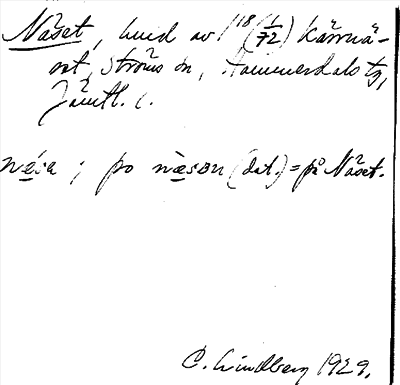 Näset, huvud av 1/18 (1/72) Kärrnä-
set, Ströms sn, Hammerdals tg,
Jämtl. l.
næ̀sa ; po næ̀sən (dat.) = på Näset.
C. Lindberg 1929.